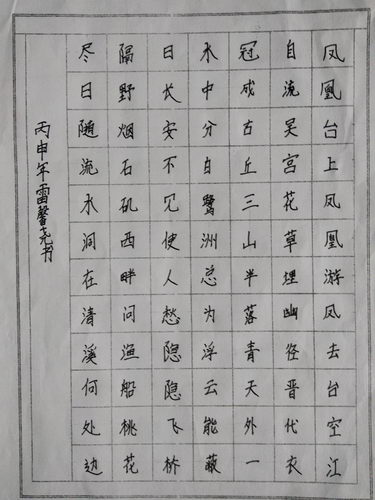 凤凰台上凤凰游凤去台空江
自流吴宫花草埋幽径晋代衣
冠成古丘三山半落青天外一
水中分白鹭洲总为浮云能蔽
日长安不见使人愁隐隐飞桥
隔野烟石矶西畔问渔船桃花
尽日随流水洞在清溪何处边
丙申年雷馨尧书